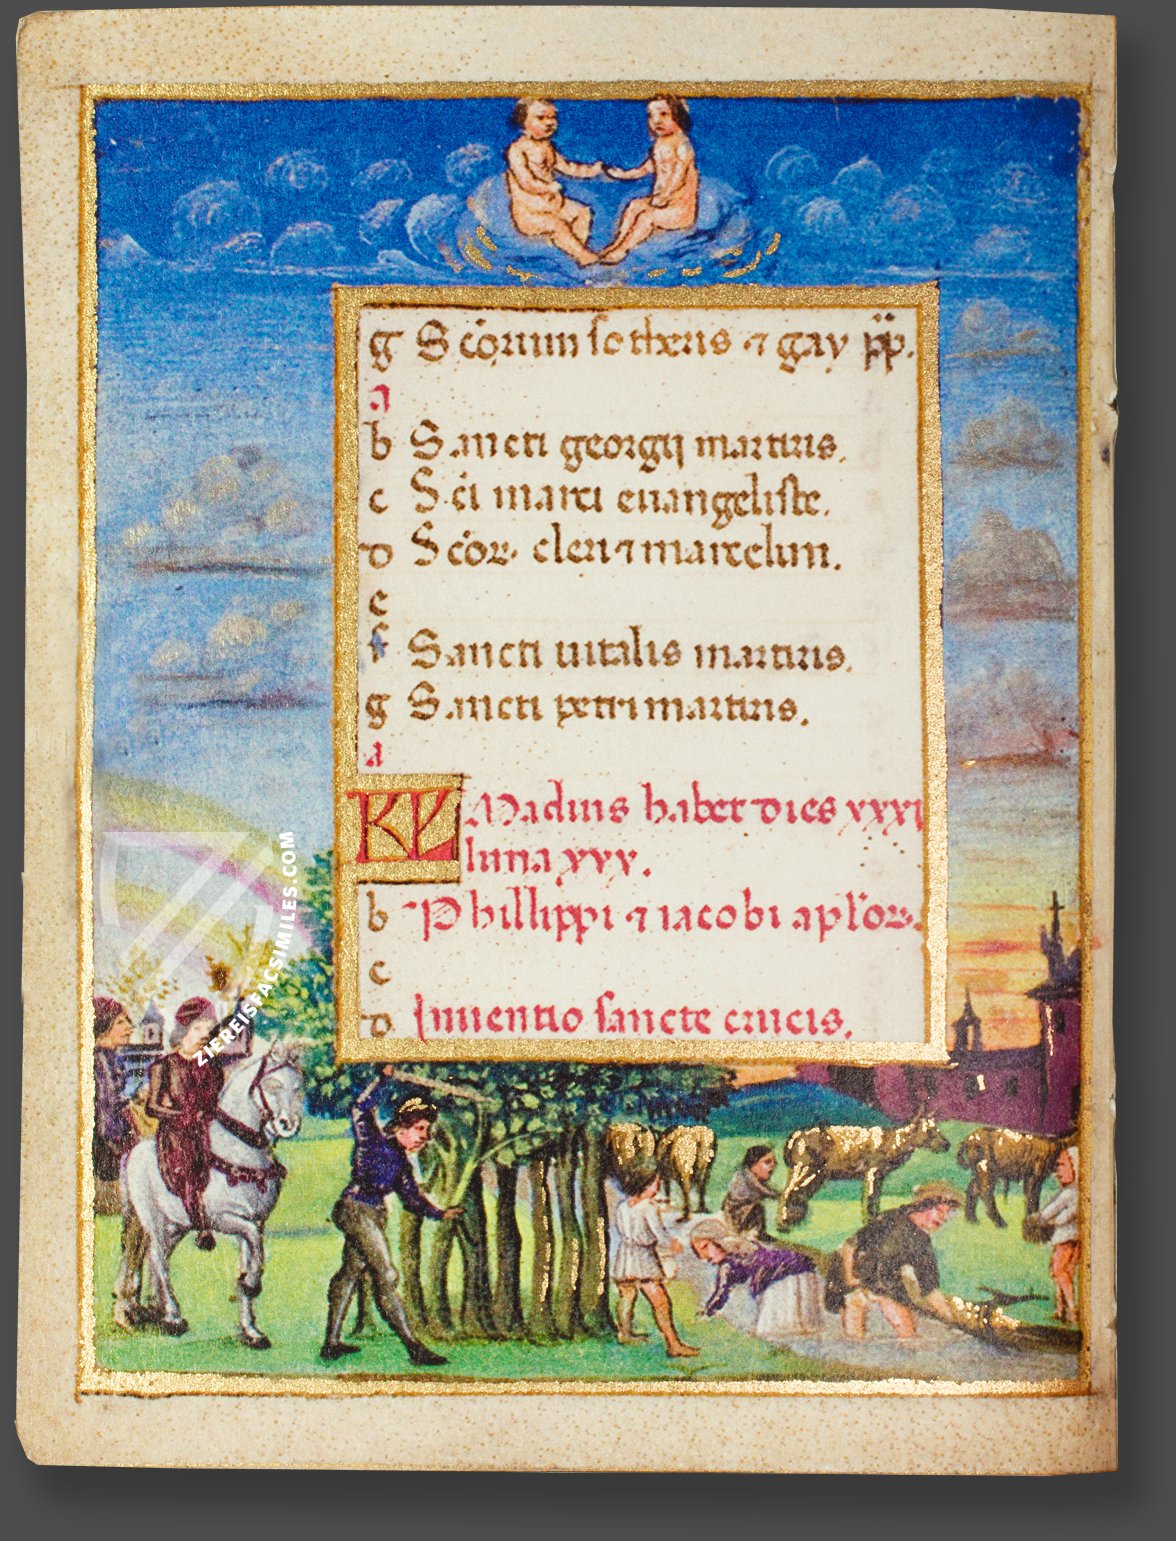 g Scõrum sotheris ⁊ gay pp̈.
a
b Sancti georgij martiris.
c S. cĩ marci euangeliste.
d Scõꝝ. cleti ⁊ marcelini.
e
f Sancti uitalis martiris.
g Sancti petri martiris.
a
KL Madius habet dies xxxi
luna xxx.
b Phillippi ⁊ iacobi aplõꝝ.
c
d Inuentio sancte crucis.
ZIEREISFACSIMILES.COM